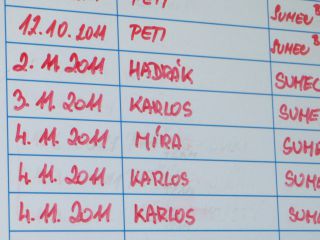 PETI SUMEC 8
12.10.2011 PETI SUMEC 8
2.11.2011 HADRÁK SUMEC
3.11.2011 KARLOS SUME
4.11.2011 MÍRA SUM
4.11.2011 KARLOS SUM
4.11.2011 KARLOS SUM